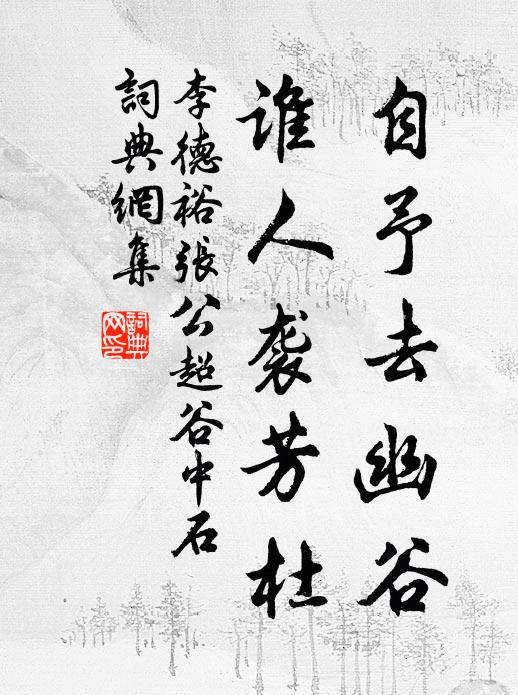 自予去幽谷
谁人袭芳杜
李德裕張公超谷中石
詞典網集
詞典
网印